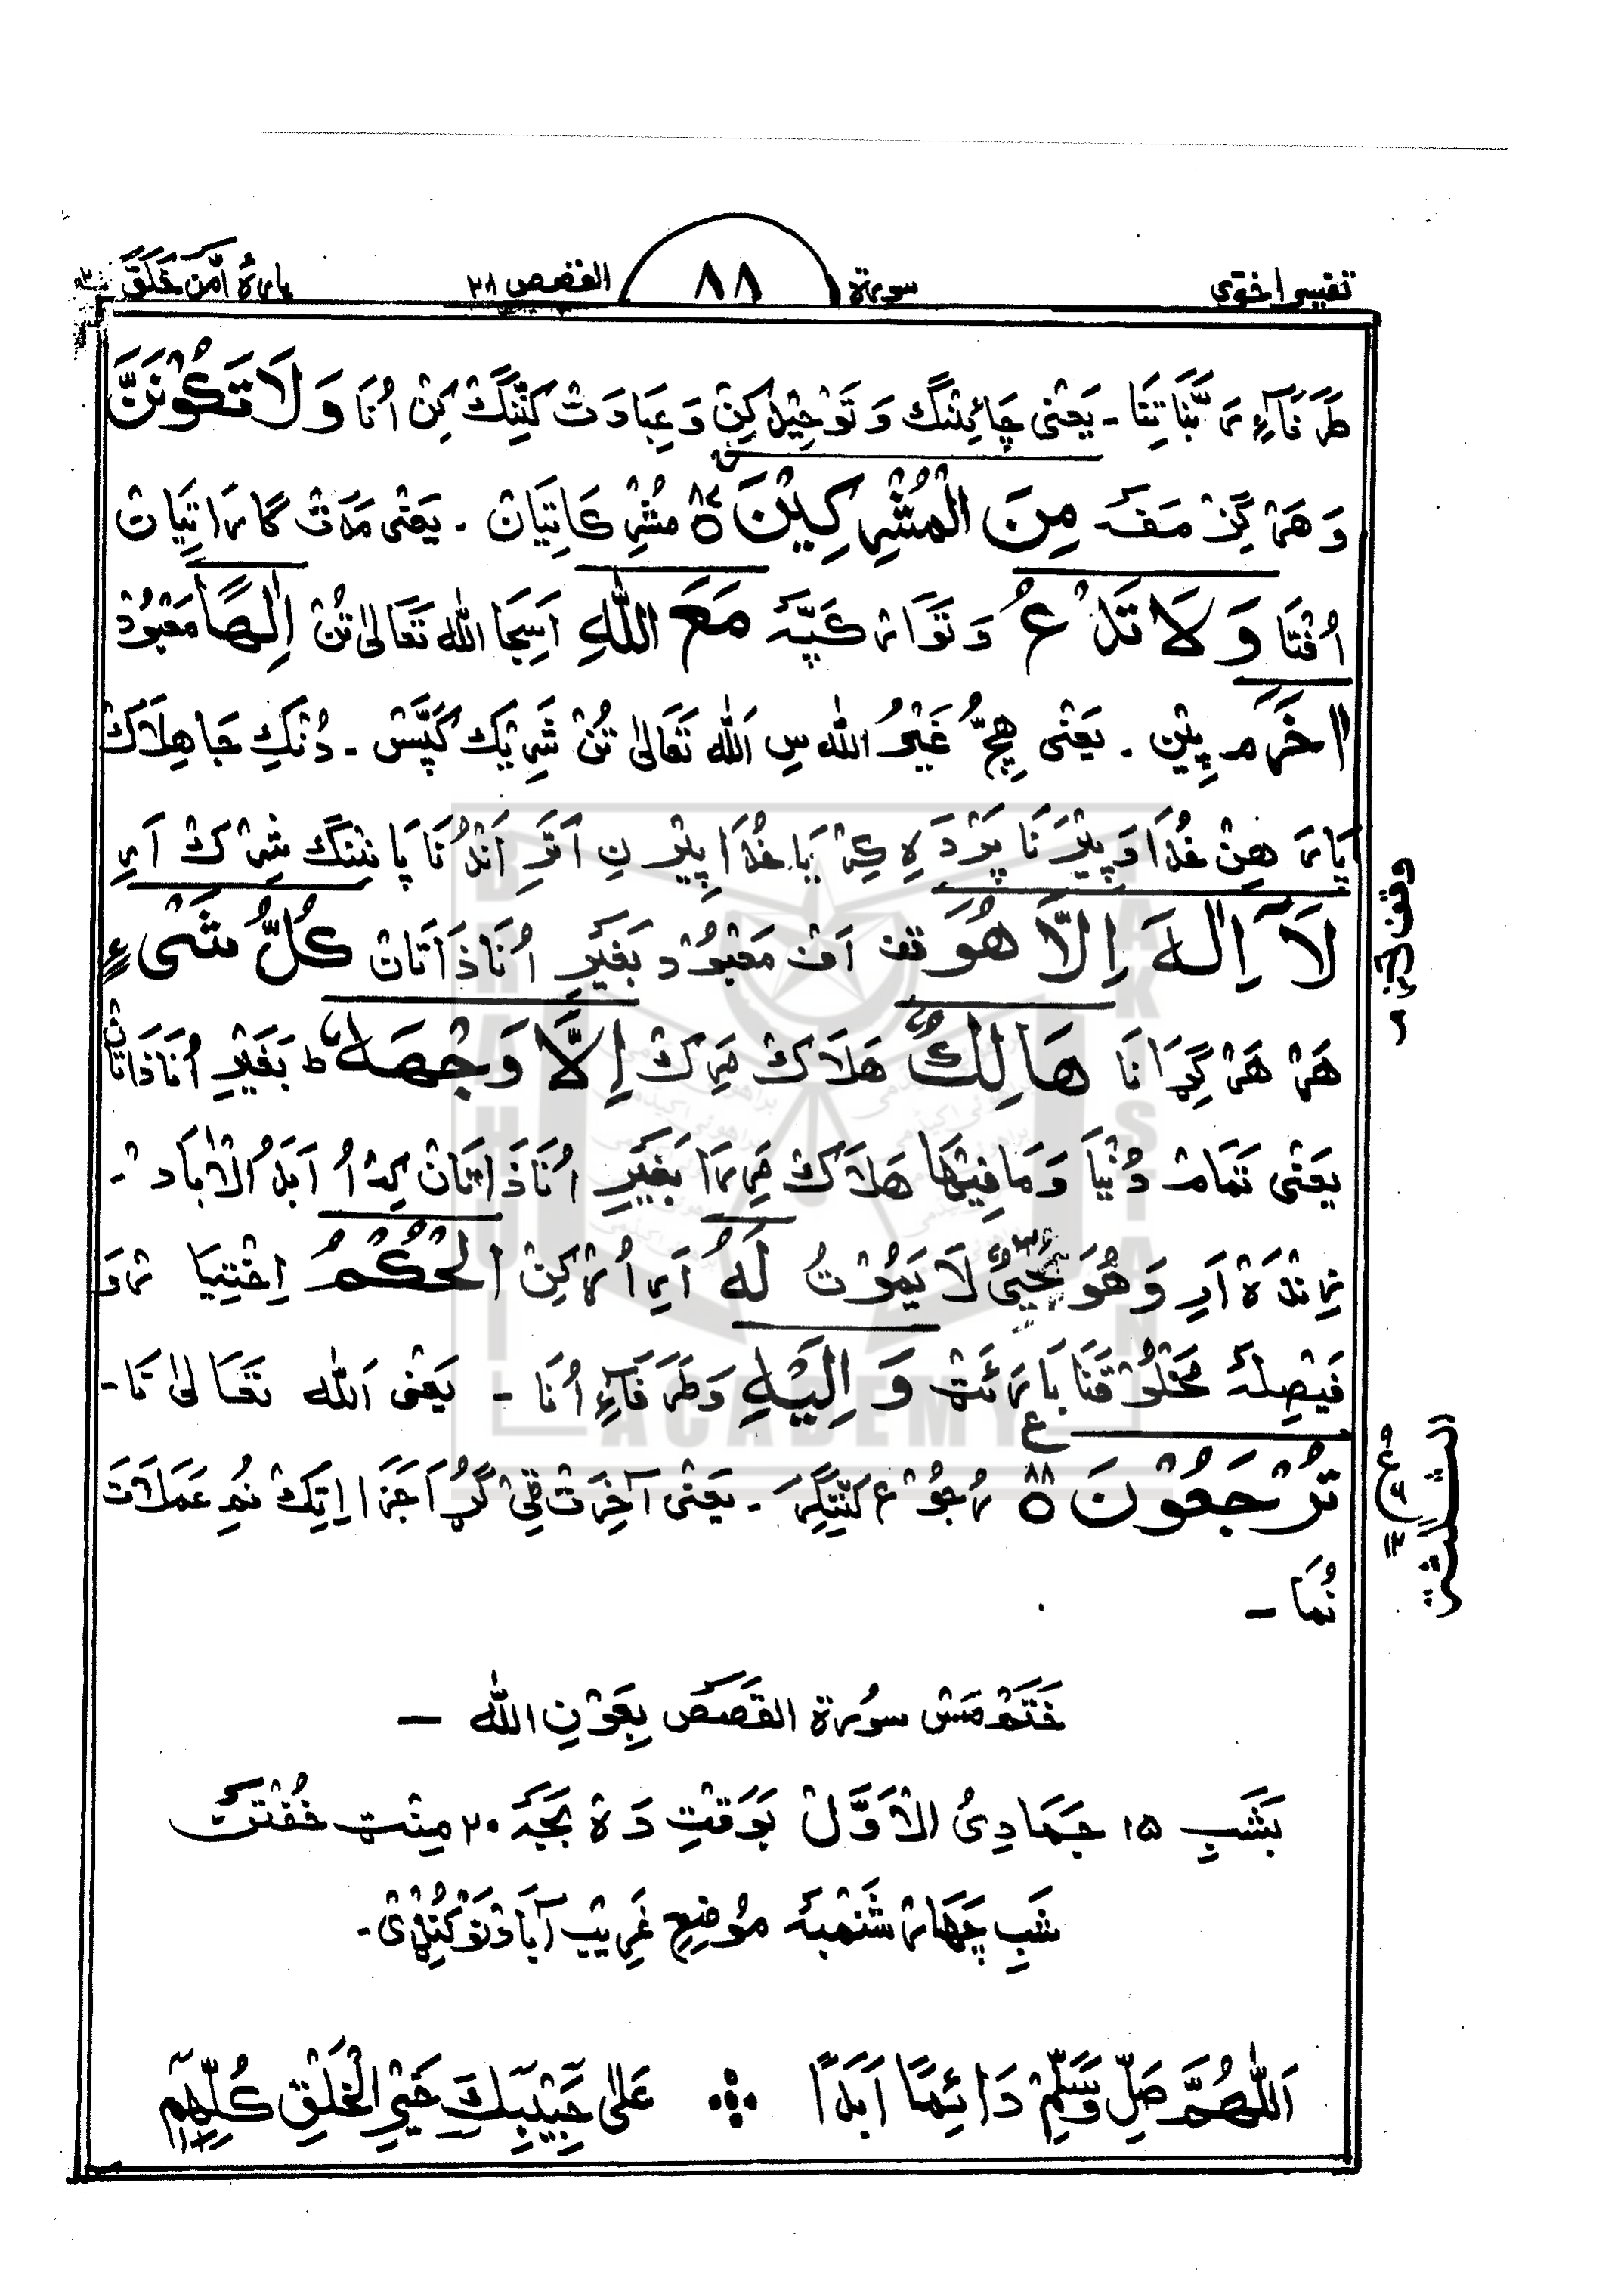 تفسیر اخوی سورة ۸۸ القصص ۲۸ پارہ امّن خلق
طَرَفَاءِ رَبَّنَاتِنَا ۔ یَعْنی چَائِنْگ وَ تَوْحِیْد کِنْ وَ عِبَادَتْ کَنِّنْگ کِنْ اُنَا وَلَا تَكُوْنَنَّ
وَ هَرْ گِزْ مَفَہ مِنَ الْمُشْرِكِيْنَ ۸۷ مُشْرِکَاتِیَان ۔ یَعْنی مَدَتْ گارَاتِیَان
اُفْتَا وَلَا تَدْعُ وَ تَوَارْ کَپَّہ مَعَ اللّٰهِ اَسِیجَا اللّٰه تَعَالیٰ تُنْ اِلٰهًا مَعْبُوْد
اٰخَرَ م پِیْن ۔ یَعْنی هِچُّ غَیْرُ اللّٰه سِ اَللّٰه تَعَالیٰ تُنْ شَرِیْک کَپَّسْ ۔ دُنْکِ جَاهِلَاک
پَارَ هِنْ خُدَا وَ پِیْرَ نَا پَرْدَہ کِرْ یَا خُدَا پِیْر نِ اَتَرِ اَنْدُنَا پَانِنْگ شِرْک اَرِ
لَآ اِلٰهَ اِلَّا هُوَ قف اَف مَعْبُوْد بَغَیْرِ اُنَا ذَاتَان كُلُّ شَیْءٍ
هَرْ هَرْ گِرَانَا هَالِكٌ هَلَاکْ مَرِکْ اِلَّا وَجْهَهٗ ط بَغَیْرِ اُنَا ذَاتَان
یَعْنی تَمَامْ دُنْیَا وَمَا فِیْهَا هَلَاکْ مَرِرَا بَغَیْرِ اُنَا ذَاتَان کِه اُ اَبَدُ الْاٰبَاد ۔
زِنْدَہ اَرِ وَهُوَ حَیٌّ لَا یَمُوْتُ لَهُ اَرِ اُرْکِنْ الْحُكْمُ اِخْتِیَار وَ
فَیْصِلَہ مَخْلُوْقَنَا بَارَئَتْ وَ اِلَيْهِ وَ طَرَفَاءِ اُنَا ۔ یَعْنی اَللّٰه تَعَالیٰ نَا ۔
تُرْجَعُوْنَ ۸۸ رُجُوْع کَنِّنْگِرَ ۔ یَعْنی آخِرَتْ ٹِیْ گُڑَا جَزَا اِتِکْ نُمِ عَمَلَاتَ
نُمَا ۔
خَتَمْ مَسْ سُورة القَصَصْ بِعَوْنِ اللّٰه —
بَشَبِ ۱۵ جَمَادِیُ الْاَوَّل بَوَقْتِ دَہ بَجَہ ۲۰ مِنْٹ خُفْتَن
شَبِ چَهَارْ شَنْبَہ مُوْضِع غَرِیْب آبَاد
اَللّٰهُمَّ صَلِّ وَسَلِّمْ دَائِمًا اَبَدًا ❖ عَلٰی حَبِیْبِکَ خَیْرِ الْخَلْقِ کُلِّهِم
الثلثة
BRAHUI ACADEMY PAKISTAN